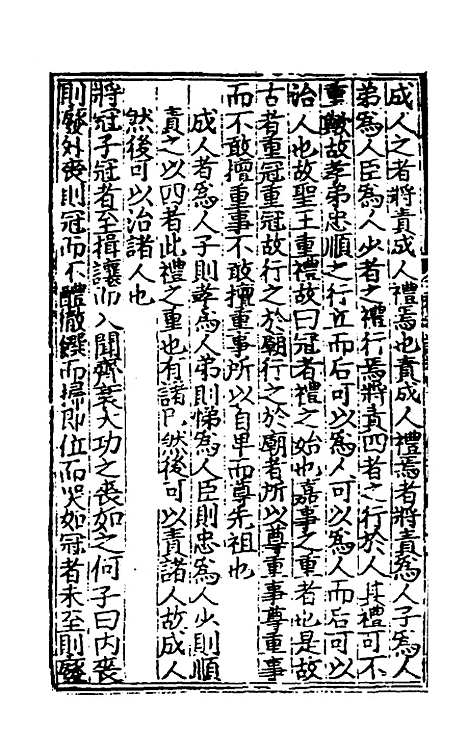 成人之者將責成人禮焉也責成人禮焉者將責為人子為人
弟為人臣為人少者之禮行焉將責四者之行於人其禮可不
重歟故孝弟忠順之行立而后可以為人可以為人而后可以
治人也故聖王重禮故曰冠者禮之始也嘉事之重者也是故
古者重冠重冠故行之於廟行之於廟者所以尊重事尊重事
而不敢擅重事不敢擅重事所以自卑而尊先祖也
成人者為人子則孝為人弟則悌為人臣則忠為人少則順
責之以四者此禮之重也有諸己然後可以責諸人故成人
然後可以治諸人也
將冠子冠者至揖讓而入聞齊衰大功之喪如之何子曰內喪
則廢外喪則冠而不醴徹饌而掃即位而哭如冠者未至則廢